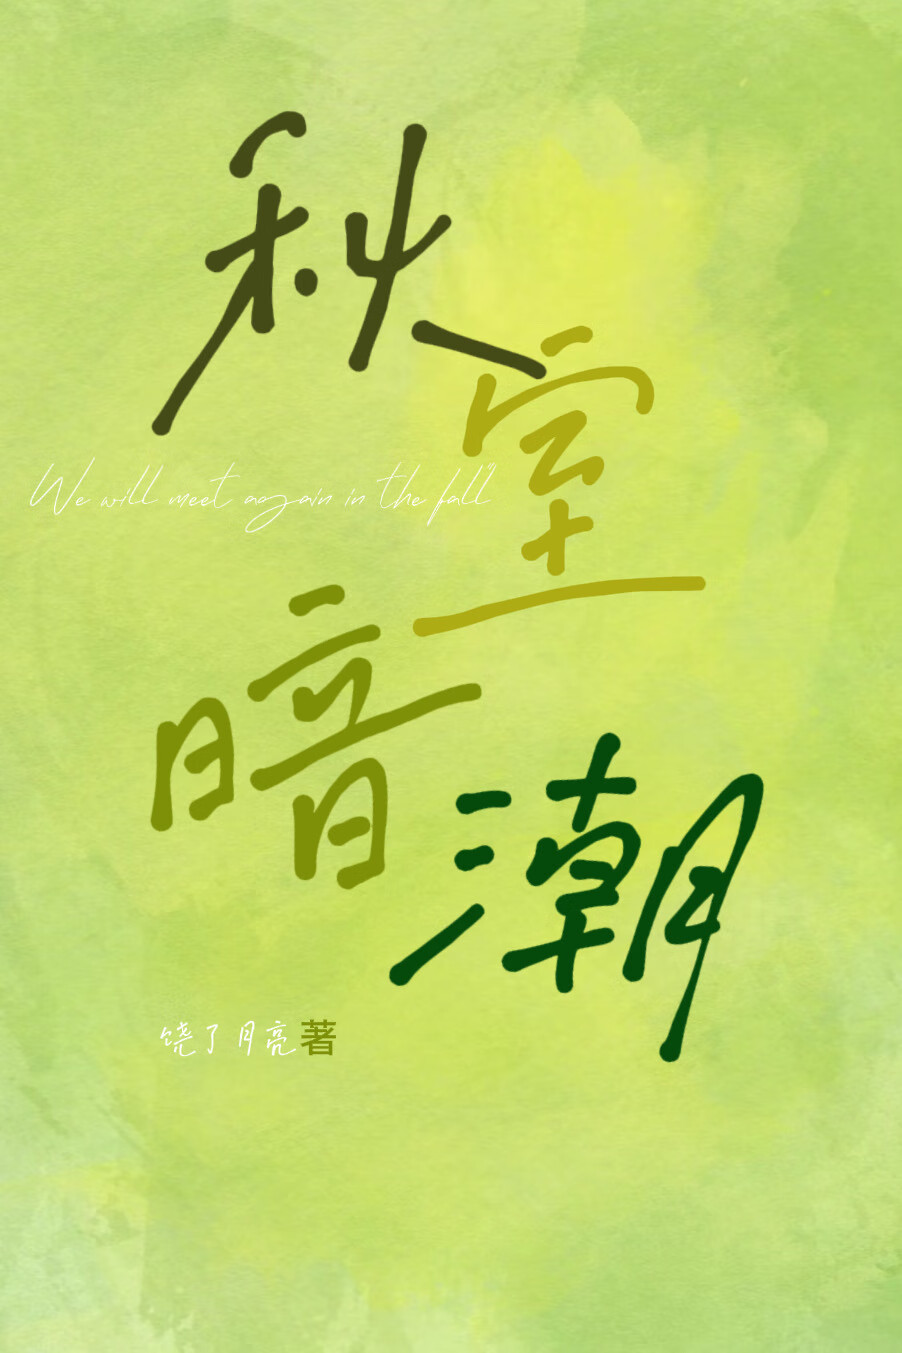 秋室
We will meet again in the fall
暗潮
饶了月亮著